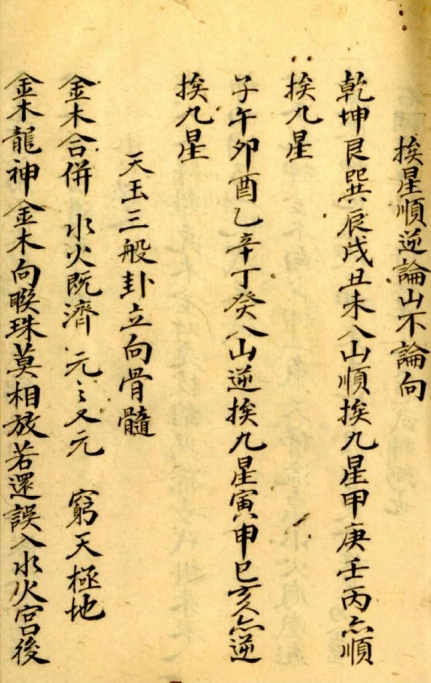 挨星順逆論山不論向
乾坤艮巽辰戌丑未八山順挨九星甲庚壬丙亦順
挨九星
子午卯酉乙辛丁癸八山逆挨九星寅申巳亥亦逆
挨九星
天玉三般卦立向骨髓
金木合併 水火既濟 元〻又元 窮天極地
金木龍神金木向睽珠莫相放若還誤入水火宮後